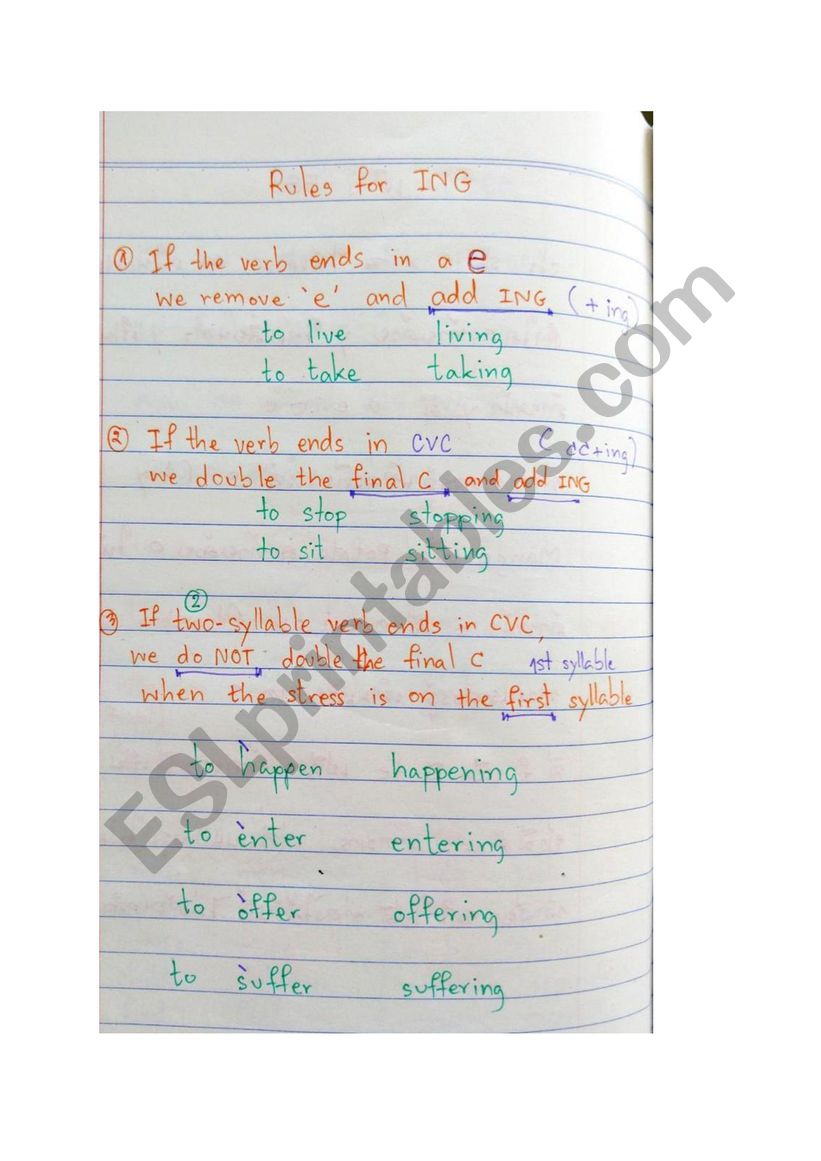 Rules for ING
① If the verb ends in a e
we remove 'e' and add ING (+ ing)
to live living
to take taking
② If the verb ends in CVC (CC+ing)
we double the final C and add ING
to stop stopping
to sit sitting
②
③ If two-syllable verb ends in CVC,
we do NOT double the final C 1st syllable
when the stress is on the first syllable
to hàppen happening
to ènter entering
to òffer offering
to sùffer suffering
ESLprintables.com